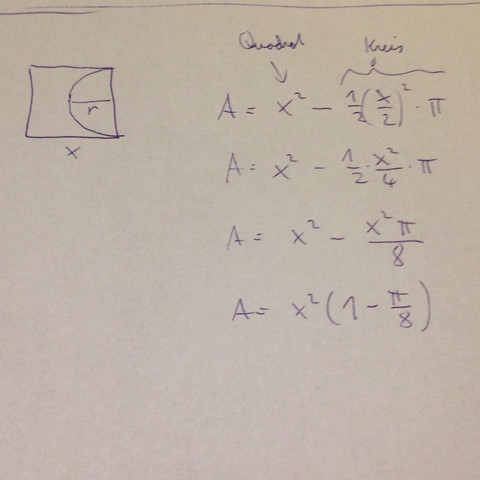 Quadrat Kreis
A = x² − 1/2 (x/2)² · π
A = x² − 1/2 · x²/4 · π
A = x² − x²π/8
A = x² (1 − π/8)
r
x